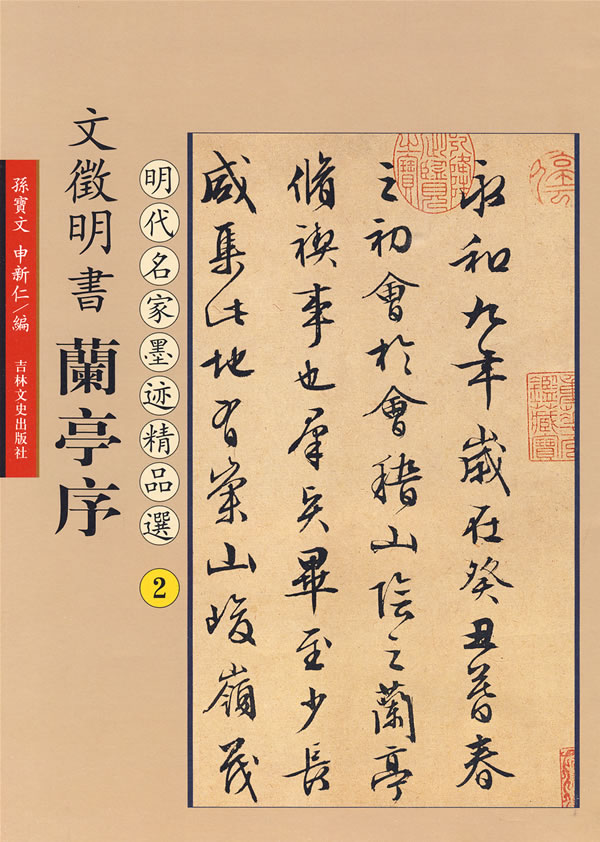 永和九年歲在癸丑暮春
之初會於會稽山陰之蘭亭
脩禊事也羣賢畢至少長
咸集此地有崇山峻嶺茂
乾隆御覽之寶
明代名家墨迹精品選 2
文徵明書 蘭亭序
孫寶文 申新仁/編
吉林文史出版社